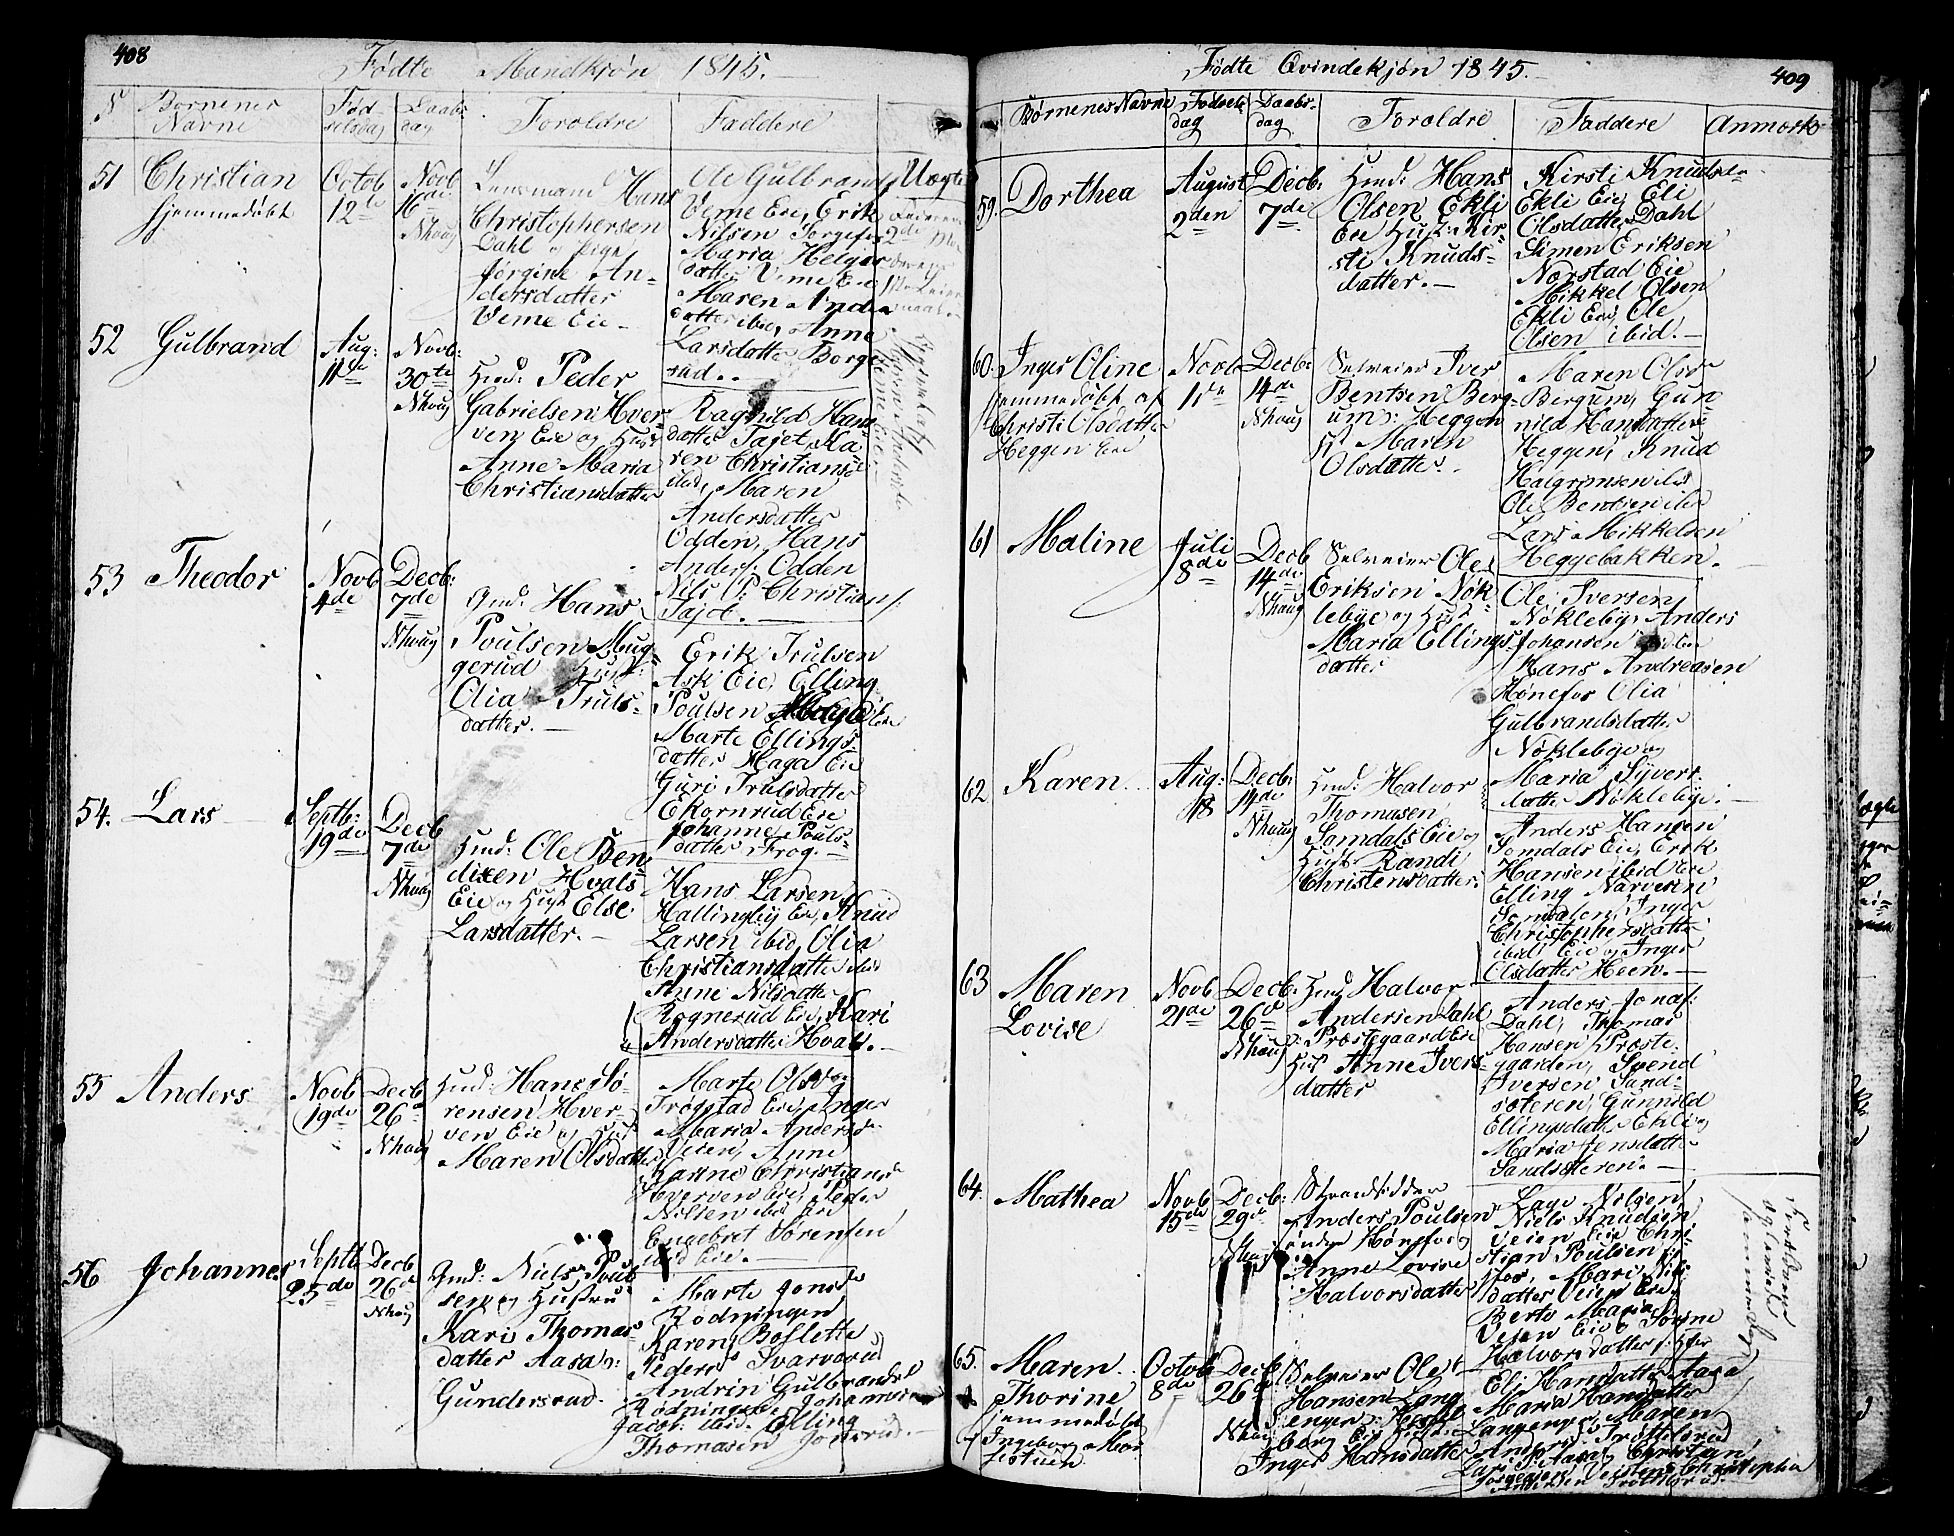 408
Fødte Mandkjøn 1845.
N Børnenes Navne
Fødselsdag
Daabsdag
Foroldre
Faddere
51 Christian
hjemmedøbt
Octob 12te
Novb 16de
Nhaug
Lensmand Hans
Christophersen
Dahl og Pige
Jørgine An-
dersdatter
Veme Eie
Ole Gulbrands
Veme Eie, Erik
Nilsen
Maria Helges
datter Veme Eie
Maren Anders
datter ibid, Anne
Larsdatter Borge
rud.
Uægte
52 Gulbrand
Aug: 11te
Novb: 30te
Nhaug
Hmd: Peder
Gabrielsen Hver
ven Eie og Hust
Anne Maria
Christiansdatter
Ragnild Hans
datter Tajet, Ka-
ren Christians
ibid, Maren
Andersdatter
Odden, Hans
Anders: Odden
Nils P: Christians:
Tajet.
53 Theodor
Novb 4de
Decb: 7de
Nhaug
Gmd: Hans
Poulsen Mug-
gerud Hust:
Olia Truls-
datter.
Erik Trulsen
Ask Eie, Elling
Poulsen
Marte Ellings
datter Haga Eie
Guri Trulsdatter
Ekornrud Eie
Johanne Pouls-
datter Frog.
54. Lars
Septb: 19de
Decb 7de
Nhaug
Hmd: Ole Ben
dixen Hvals
Eie og Hust Else
Larsdatter.
Hans Larsen
Hallingby Eie, Knud
Larsen ibid, Olia
Christiansdatter ibid
Anne Nilsdatter
Rognerud Eie, Kari
Andersdatter Hvals.
55 Anders
Novb 19de
Decb 26de
Nhaug
Hmd: Hans Sø-
rensen Hver-
ven Eie og Hust
Maren Olsdatter
Marte Olsda
Trøgstad Eie, Inger
Maria Andersda
Veien, Anne
Karine Christians
Hverven Eie, Peder
Nilsen ibid Eie
Engebret Sørensen
ibid Eie.
56 Johannes
Septb 25de
Decb 26de
Nhaug
Gmd: Niels Poul
sen og Hustru
Kari Thomas-
datter Aasa
Gundersrud.
Marte Jonsda
Rødningen
Karen Boflette
Peders Svarverud
Andrin Gulbrandsd
Rødningen Johannes
Jacob: ibid: Elling
Thomasen
409
Fødte Qvindekjøn 1845.
Børnenes Navne
Fødselsdag
Daabsdag
Foroldre
Faddere
Anmerk
59. Dorthea
August 2den
Decb: 7de
Hmd: Hans
Olsen Ekli
Eie Hust: Kir-
sti Knuds-
datter.
Kirsti Knudsda
Ekli Eie, Eli
Olsdatter Dahl
Simen Eriksen
Norstad Eie
Mikkel Olsen
Ekli Eie, Ole
Olsen ibid.
60. Inger Oline
hjemmedøbt af
Christi Olsdatter
Heggen Eie
Novb 11te
Decb: 14de
Nhaug
Selveier Iver
Bentsen Berg-
um: Heggen
H: Maren
Olsdatter.
Maren Olsda
Bergum, Gun-
nild Hansdatter
Heggen, Knud
Halgrimsen ibid
Ole Bentsen ibid
Lars Mikkelsen
Heggebakken.
61 Maline
Juli 8de
Decb 14de
Nhaug
Selveier Ole
Eriksen Nøk-
lebye og Hust
Maria Ellings-
datter
Ole Iversen
Nøkleby, Anders
Johansen ibid Eie
Hans Andreasen
Hønefos Olia
Gulbrandsdatter
Nøklebye og
Maria Syvert-
datter Nøklebye.
62 Karen
Aug: 18
Decb: 14de
Nhaug
Hmd: Halvor
Thomasen
Somdals Eie og
Hust Randi
Christensdatter:
Anders Hansen
Somdals Eie, Erik
Hansen ibid Eie
Elling Narvesen
Somdalen, Inger
Christophersdatter
ibid Eie og Inger
Olsdatter Heen.
63 Maren
Lovise
Novb 21de
Decb: 26de
Nhaug
Hmd Halvor
Andersen Dahl
Prøstegaard Eie
Hust Anne Ivers-
datter
Anders Jonas:
Dahl, Thomas
Hansen Prøste-
gaarden, Svend
Iversen Sand-
soteren, Gunnild
Ellingsdatter Ekli og
Maria Jensdatter
Sandsoteren.
64. Mathea
Novb 15de
Decb: 29de
Nhaug
Strandsidder
Anders Poulsen
Søndre Hønefos
Anne Lovise
Halvorsdatter
Lage Nilsen
Niels Knudsen
Veien Eie Chri-
stian Poulsen
Hfos, Mari Nils
datter Veien Eie,
Berte Maria
Veien Eie & Sørine
Halvorsdatter Hfos
65. Maren
Thorine
hjemmedøbt
af Ingeborg Mor
jestuen
Octob 8de
Decb 26de
Nhaug
Selveier Ole
Hansen Lang
Inger Hansdatter
Eli Hansdatter Aasa
Maria Hansdatter
Langenga, Maren
Anders: Trøttelsrud
Christian